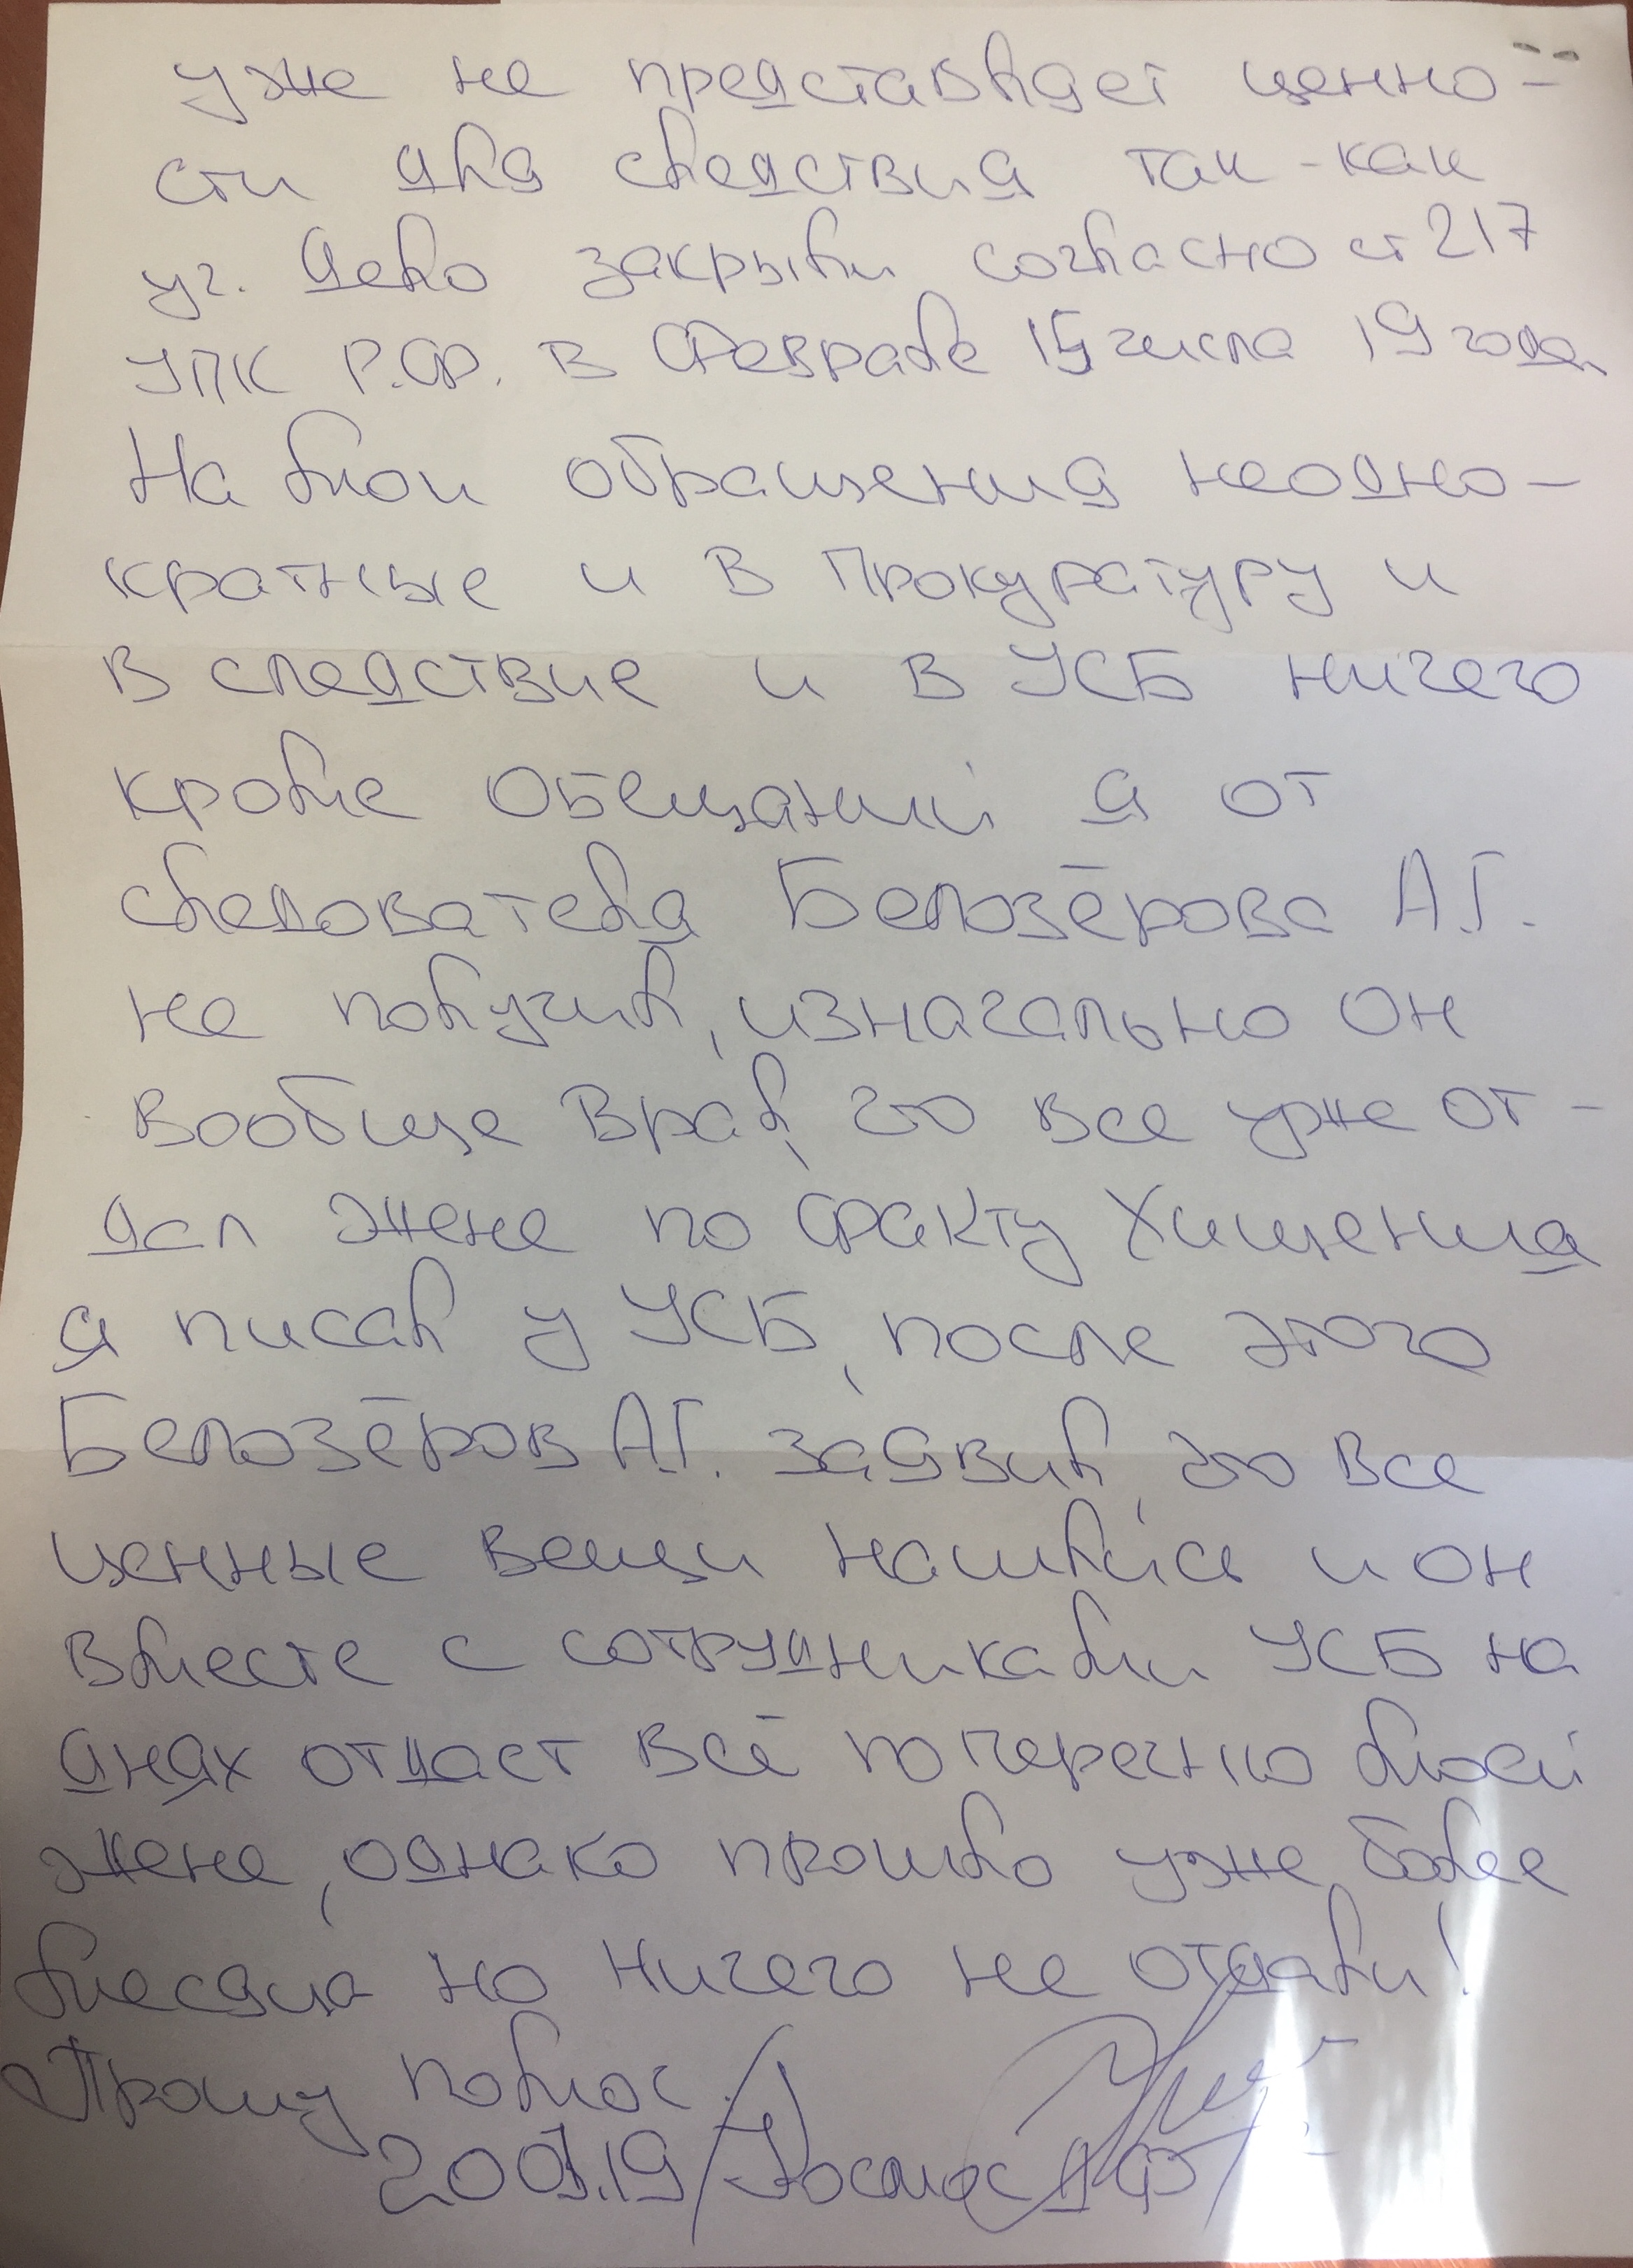 уже не представляет ценно-
сти для следствия так-как
уг. Дело закрыли согласно ст 217
УПК Р.Ф. в Феврале 15 числа 19 года
На мои обращения неодно-
кратные и в Прокуратуру и
в следствие и в УСБ ничего
кроме Обещаний я от
следователя Белозёрова А.Г.
не получил, изначально Он
вообще врал, что все уже от-
дал жене по факту Хищения
я писал у УСБ, после этого
Белозёров А.Г. заявил, что все
ценные вещи нашлись и он
вместе с сотрудниками УСБ на
днях отдаст всё по перечню моей
жене, однако прошло уже более
месяца но ничего не отдали!
Прошу помос